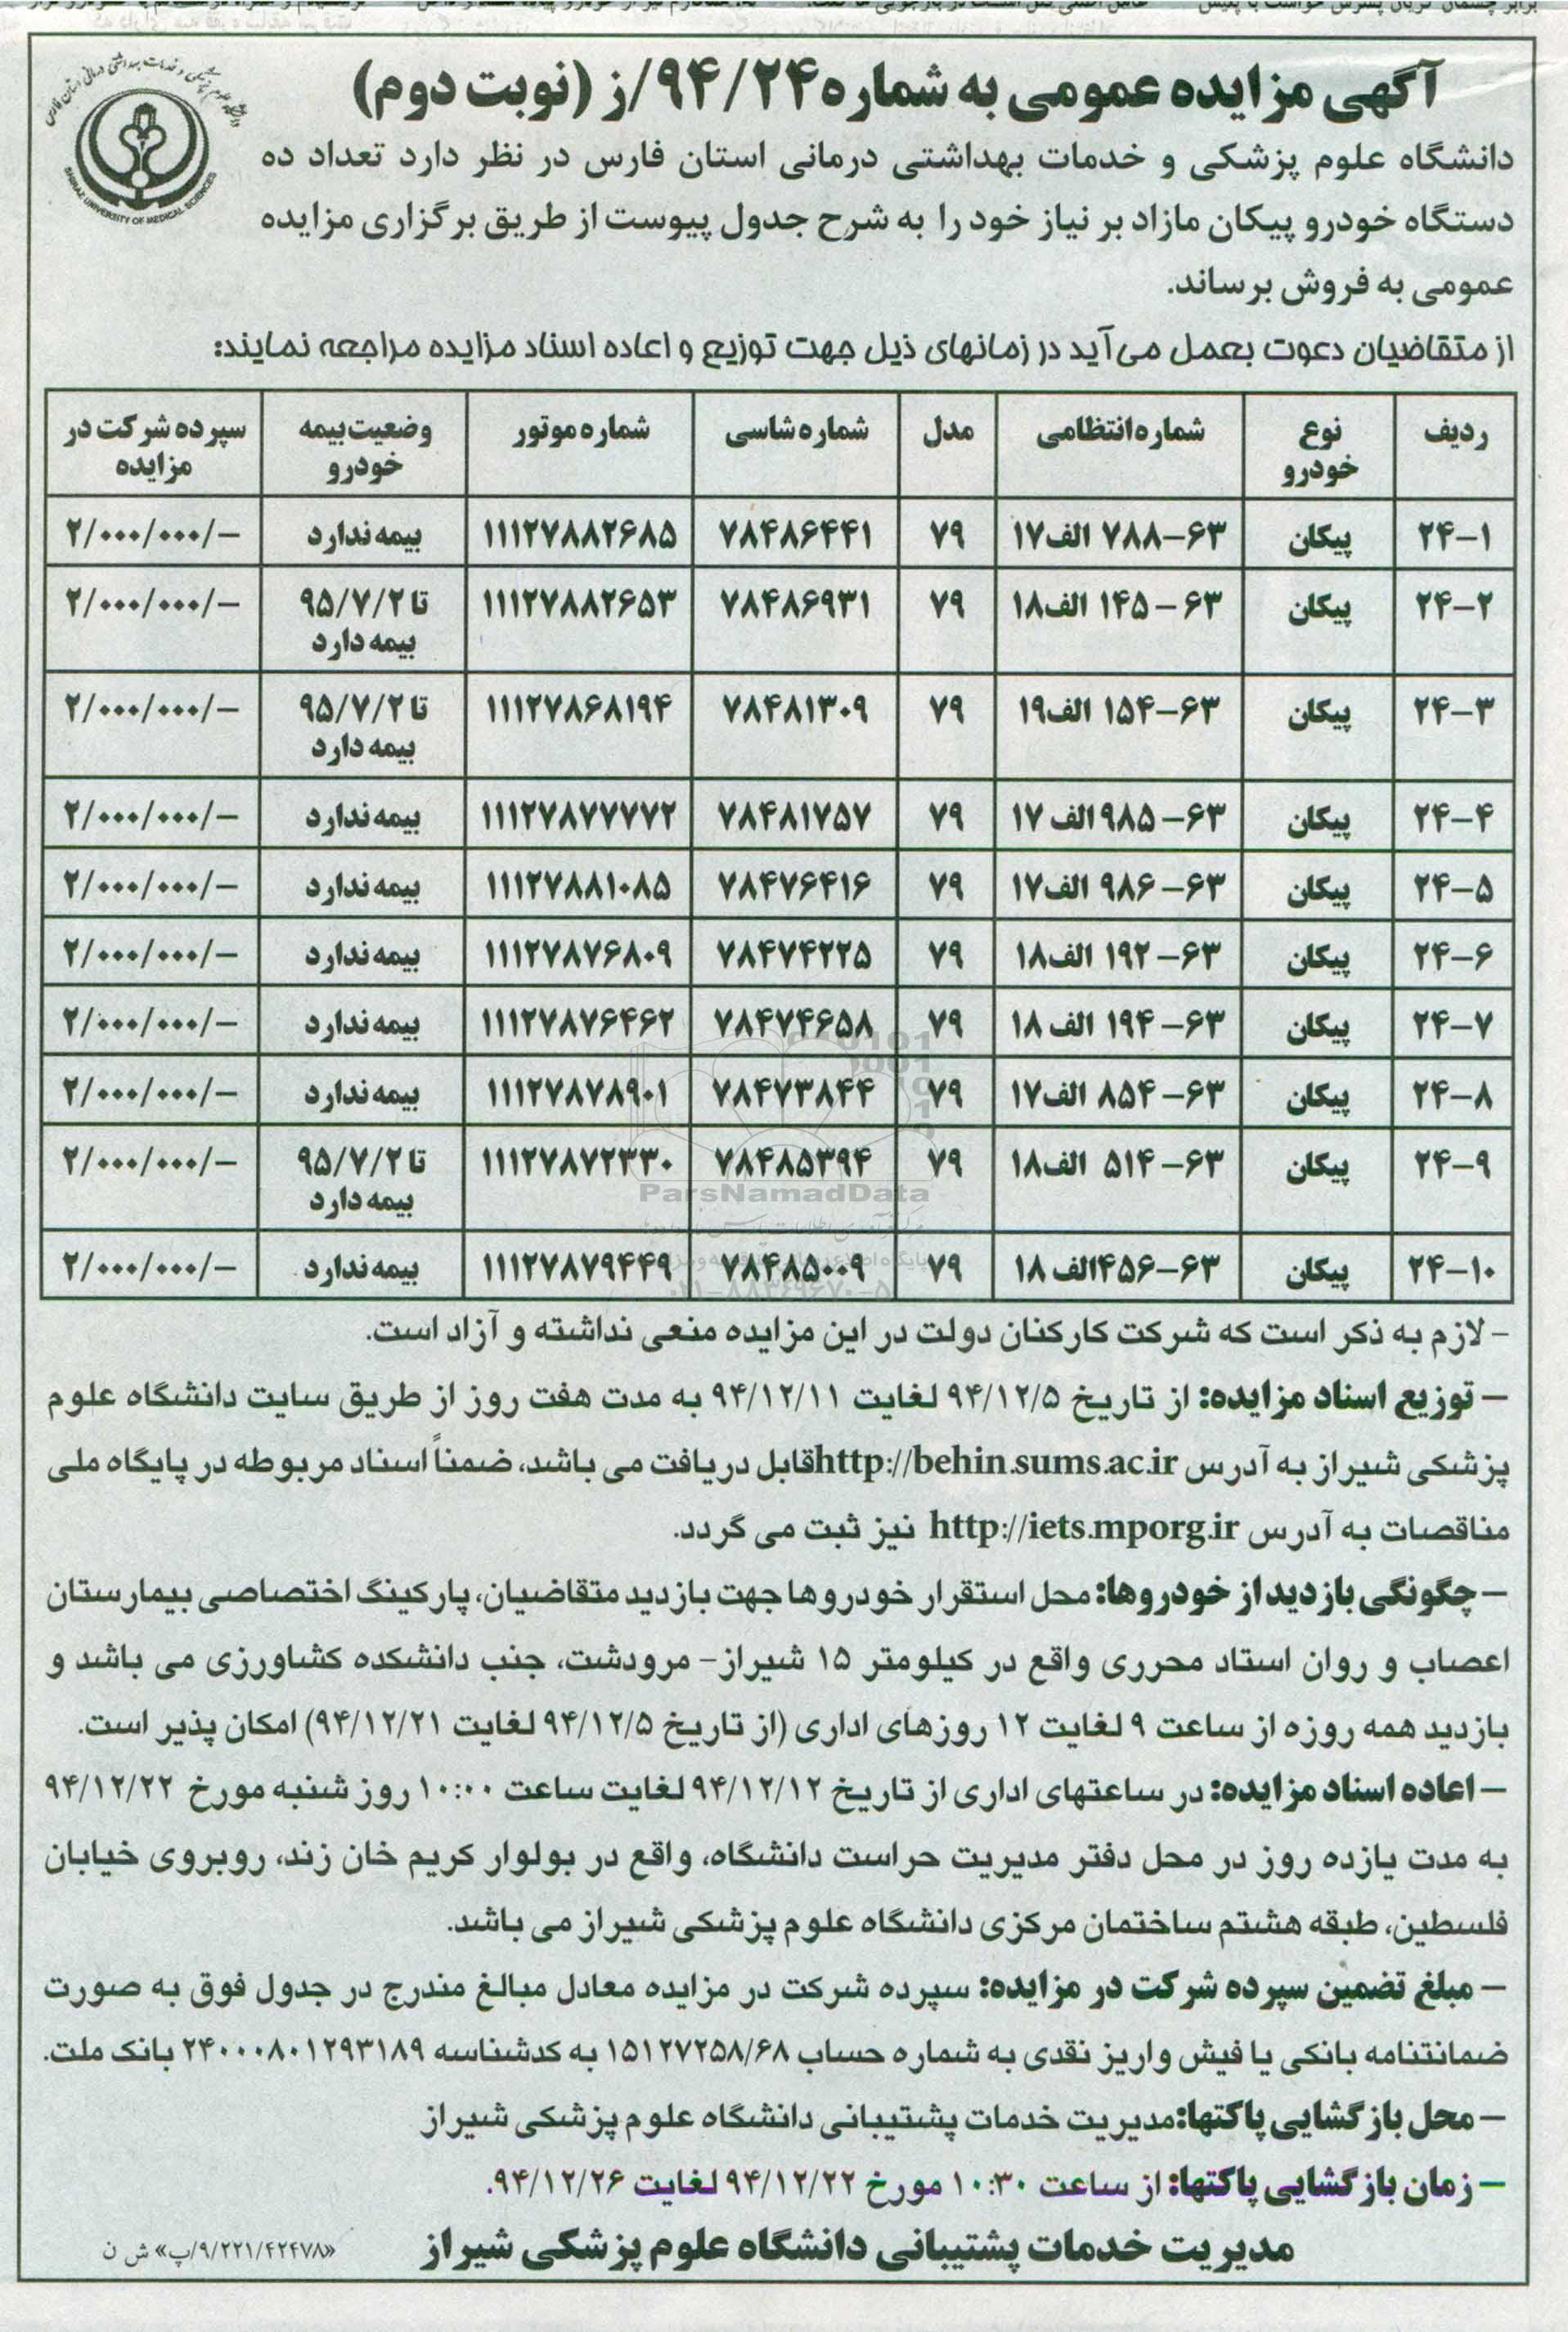 آگهی مزایده عمومی به شماره ۹۴/۲۴/ز (نوبت دوم)
SHIRAZ UNIVERSITY OF MEDICAL SCIENCES
دانشگاه علوم پزشکی و خدمات بهداشتی درمانی استان فارس در نظر دارد تعداد ده
دستگاه خودرو پیکان مازاد بر نیاز خود را به شرح جدول پیوست از طریق برگزاری مزایده
عمومی به فروش برساند.
از متقاضیان دعوت بعمل می‌آید در زمانهای ذیل جهت توزیع و اعاده اسناد مزایده مراجعه نمایند:
ردیف نوع خودرو شماره انتظامی مدل شماره شاسی شماره موتور وضعیت بیمه خودرو سپرده شرکت در مزایده
۲۴-۱ پیکان ۶۳-۷۸۸ الف ۱۷ ۷۹ ۷۸۴۸۶۴۴۱ ۱۱۱۲۷۸۸۲۶۸۵ بیمه ندارد ۲/۰۰۰/۰۰۰/-
۲۴-۲ پیکان ۶۳-۱۴۵ الف ۱۸ ۷۹ ۷۸۴۸۶۹۳۱ ۱۱۱۲۷۸۸۲۶۵۳ تا ۹۵/۷/۲ بیمه دارد ۲/۰۰۰/۰۰۰/-
۲۴-۳ پیکان ۶۳-۱۵۴ الف ۱۹ ۷۹ ۷۸۴۸۱۳۰۹ ۱۱۱۲۷۸۶۸۱۹۴ تا ۹۵/۷/۲ بیمه دارد ۲/۰۰۰/۰۰۰/-
۲۴-۴ پیکان ۶۳-۹۸۵ الف ۱۷ ۷۹ ۷۸۴۸۱۷۵۷ ۱۱۱۲۷۸۷۷۷۷۲ بیمه ندارد ۲/۰۰۰/۰۰۰/-
۲۴-۵ پیکان ۶۳-۹۸۶ الف ۱۷ ۷۹ ۷۸۴۷۶۴۱۶ ۱۱۱۲۷۸۸۱۰۸۵ بیمه ندارد ۲/۰۰۰/۰۰۰/-
۲۴-۶ پیکان ۶۳-۱۹۲ الف ۱۸ ۷۹ ۷۸۴۷۴۲۲۵ ۱۱۱۲۷۸۷۶۸۰۹ بیمه ندارد ۲/۰۰۰/۰۰۰/-
۲۴-۷ پیکان ۶۳-۱۹۴ الف ۱۸ ۷۹ ۷۸۴۷۴۶۵۸ ۱۱۱۲۷۸۷۶۴۶۲ بیمه ندارد ۲/۰۰۰/۰۰۰/-
۲۴-۸ پیکان ۶۳-۸۵۴ الف ۱۷ ۷۹ ۷۸۴۷۳۸۴۴ ۱۱۱۲۷۸۷۸۹۰۱ بیمه ندارد ۲/۰۰۰/۰۰۰/-
۲۴-۹ پیکان ۶۳-۵۱۴ الف ۱۸ ۷۹ ۷۸۴۸۵۳۹۴ ۱۱۱۲۷۸۷۲۳۳۰ تا ۹۵/۷/۲ بیمه دارد ۲/۰۰۰/۰۰۰/-
۲۴-۱۰ پیکان ۶۳-۴۵۶ الف ۱۸ ۷۹ ۷۸۴۸۵۰۰۹ ۱۱۱۲۷۸۷۹۴۴۹ بیمه ندارد ۲/۰۰۰/۰۰۰/-
ParsNamadData
۰۲۱-۸۸۳۴۹۶۷۰-۵
- لازم به ذکر است که شرکت کارکنان دولت در این مزایده منعی نداشته و آزاد است.
- توزیع اسناد مزایده: از تاریخ ۹۴/۱۲/۵ لغایت ۹۴/۱۲/۱۱ به مدت هفت روز از طریق سایت دانشگاه علوم
پزشکی شیراز به آدرس http://behin.sums.ac.ir قابل دریافت می باشد، ضمناً اسناد مربوطه در پایگاه ملی
مناقصات به آدرس http://iets.mporg.ir نیز ثبت می گردد.
- چگونگی بازدید از خودروها: محل استقرار خودروها جهت بازدید متقاضیان، پارکینگ اختصاصی بیمارستان
اعصاب و روان استاد محرری واقع در کیلومتر ۱۵ شیراز- مرودشت، جنب دانشکده کشاورزی می باشد و
بازدید همه روزه از ساعت ۹ لغایت ۱۲ روزهای اداری (از تاریخ ۹۴/۱۲/۵ لغایت ۹۴/۱۲/۲۱) امکان پذیر است.
- اعاده اسناد مزایده: در ساعتهای اداری از تاریخ ۹۴/۱۲/۱۲ لغایت ساعت ۱۰:۰۰ روز شنبه مورخ ۹۴/۱۲/۲۲
به مدت یازده روز در محل دفتر مدیریت حراست دانشگاه، واقع در بولوار کریم خان زند، روبروی خیابان
فلسطین، طبقه هشتم ساختمان مرکزی دانشگاه علوم پزشکی شیراز می باشد.
- مبلغ تضمین سپرده شرکت در مزایده: سپرده شرکت در مزایده معادل مبالغ مندرج در جدول فوق به صورت
ضمانتنامه بانکی یا فیش واریز نقدی به شماره حساب ۱۵۱۲۷۲۵۸/۶۸ به کدشناسه ۲۴۰۰۰۸۰۱۲۹۳۱۸۹ بانک ملت.
- محل بازگشایی پاکتها: مدیریت خدمات پشتیبانی دانشگاه علوم پزشکی شیراز
- زمان بازگشایی پاکتها: از ساعت ۱۰:۳۰ مورخ ۹۴/۱۲/۲۲ لغایت ۹۴/۱۲/۲۶.
مدیریت خدمات پشتیبانی دانشگاه علوم پزشکی شیراز
«۹/۲۲۱/۴۲۴۷۸/پ» ش ن